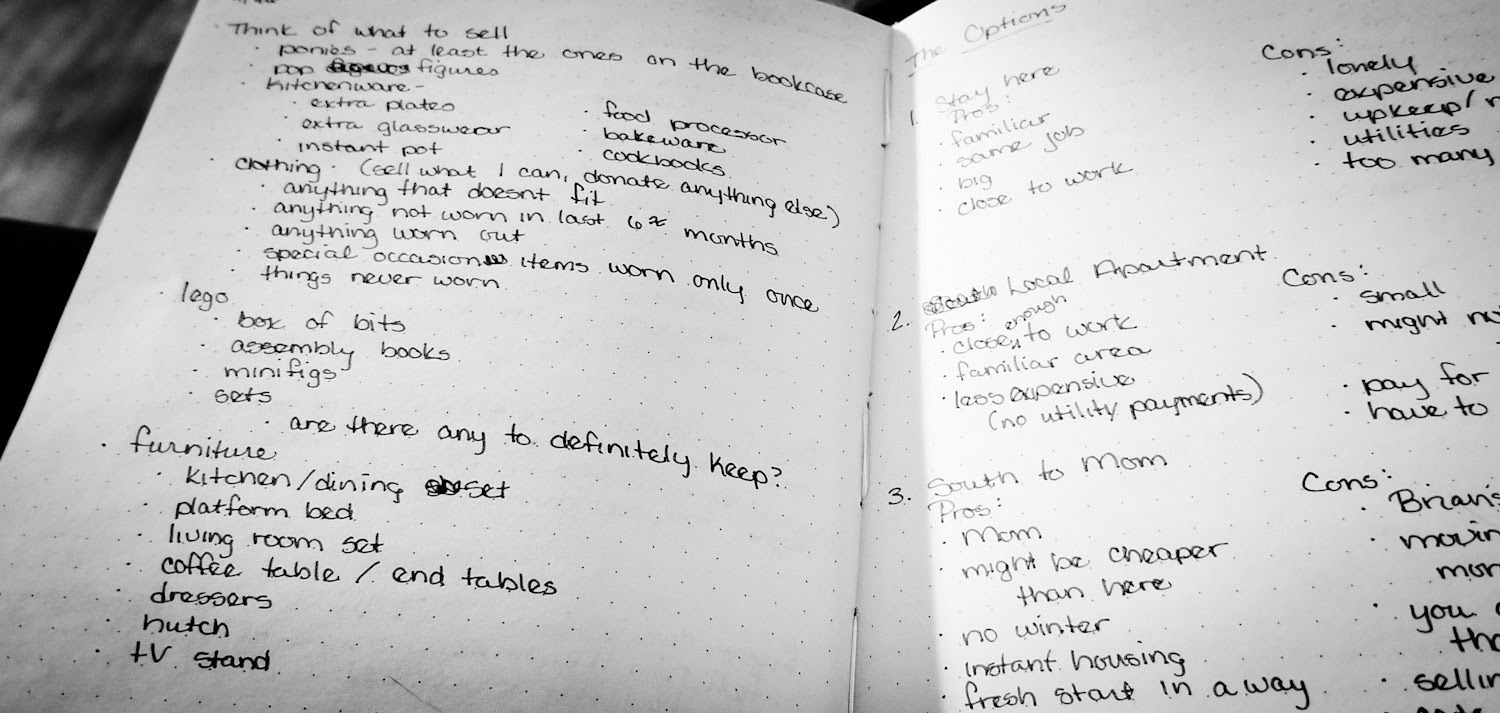 Think of what to sell
· ponies - at least the ones on the bookcase
· pop figures
· kitchenware -
· extra plates
· extra glasswear
· instant pot
· food processor
· bakeware
· cookbooks
· clothing · (sell what I can, donate anything else)
· anything that doesnt fit
· anything not worn in last 6 months
· anything worn out
· special occasion items worn only once
· things never worn
· lego
· box of bits
· assembly books
· minifigs
· sets
· are there any to definitely keep?
· furniture
· kitchen/dining set
· platform bed
· living room set
· coffee table / end tables
· dressers
· hutch
· tv stand
The Options
1. Stay here
Pros:
· familiar
· same job
· big
· close to work
Cons:
· lonely
· expensive
· upkeep/
· utilities
· too many
2. Local Apartment
Pros:
· close enough to work
· familiar area
· less expensive
(no utility payments)
Cons:
· small
· might
· pay for
· have to
3. South to Mom
Pros:
· Mom
· might be cheaper
than here
· no winter
· instant housing
· fresh start in a way
Cons:
· Brian's
· you